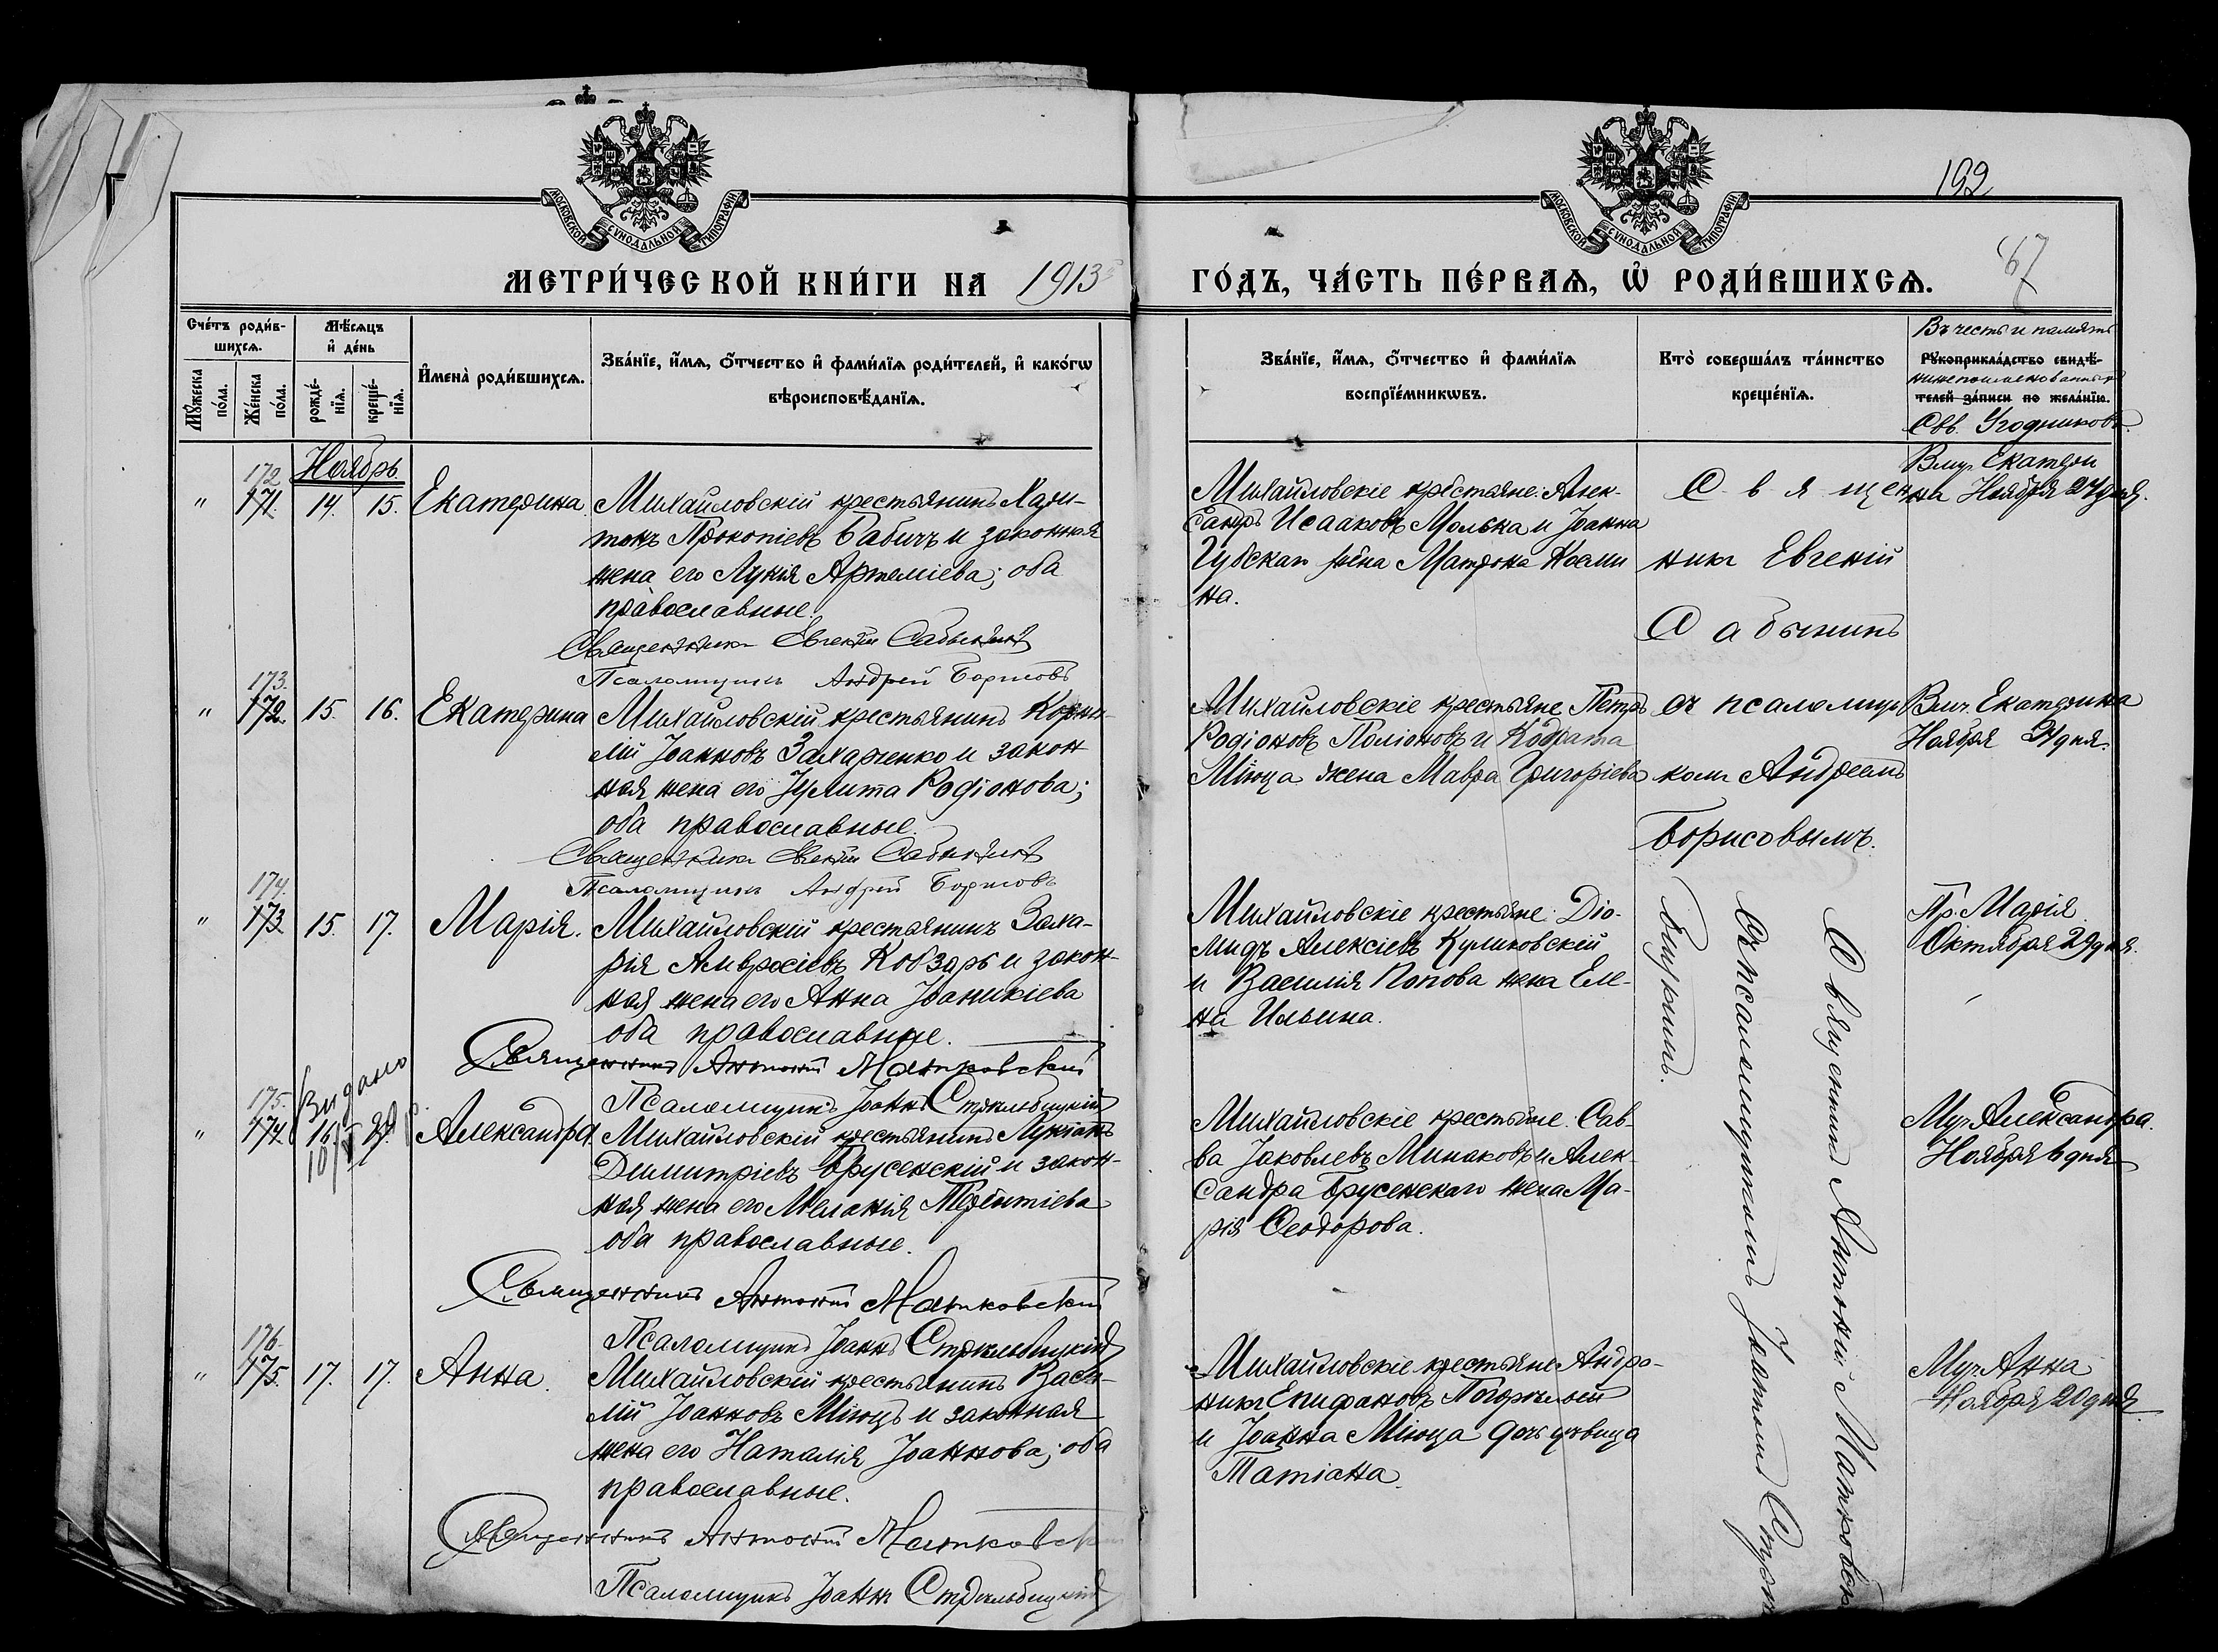 192
МОСКОВСКОЙ СѴНОДАЛЬНОЙ ТИПОГРАФІИ
МОСКОВСКОЙ СѴНОДАЛЬНОЙ ТИПОГРАФІИ
МЕТРИ́ЧЕСКОЙ КНИ́ГИ НА 1913
ГО́ДЪ, ЧА́СТЬ ПЕ́РВАѦ, Ѡ҆ РОДИ́ВШИХСѦ.
67
Сче́тъ роди́в-
шихсѧ.
Мѣ́сѧцъ
и҆ де́нь
Мꙋ́жеска по́ла.
Же́нска по́ла.
рожде́-
нїѧ.
креще́-
нїѧ.
И҆мена̀ роди́вшихсѧ.
Зва́нїе, и҆́мѧ, ѻ҆́тчество и҆ фами́лїѧ роди́телей, и҆ како́гѡ
вѣроисповѣ́данїѧ.
Зва́нїе, и҆́мѧ, ѻ҆́тчество и҆ фами́лїѧ
воспрїе́мникѡвъ.
Кто̀ соверша́лъ та́инство
креще́нїѧ.
Въ честь и память
Рꙋкоприкла́дство свидѣ́-
нижепоименованныхъ
телей за́писи по жела́нїю.
Свв. Угодниковъ.
Ноябрь.
172
171.
14.
15.
Екатерина.
Михайловскій крестьянинъ Хари-
тонъ Прокопіевъ Бабичъ и законная
жена его Лукія Артеміева; оба
православные.
Священникъ Евгеній Сабынинъ
Псаломщикъ Андрей Борисовъ
Михайловскіе крестьяне: Алек-
сандръ Исааковъ Молька и Іоанна
Губскаго жена Матрона Косми
на.
Священ
никъ Евгеній
Сабынинъ
Вмц. Екатери
на Ноября 24 дня.
173.
172.
15.
16.
Екатерина
Михайловскій крестьянинъ Корни-
лій Іоанновъ Захарченко и закон
ная жена его Іулита Родіонова;
оба православные.
Священникъ Евгеній Сабынинъ
Псаломщикъ Андрей Борисовъ
Михайловскіе крестьяне Петръ
Родіоновъ Поліоновъ и Кодрата
Міюца жена Мавра Григоріева
съ псаломщи
комъ Андреемъ
Борисовымъ.
Вмч. Екатерина
Ноября 24 дня.
174.
173
15.
17.
Марія.
Михайловскій крестьянинъ Заха-
рія Амвросіевъ Кобзарь и закон-
ная жена его Анна Іоаникіева
оба православные.
Священникъ Антоній Матковскій
Псаломщикъ Іоаннъ Стрѣльбицкій
Михайловскіе крестьяне: Діо-
мидъ Алексіевъ Куликовскій
и Василія Попова жена Еле-
на Ильина.
Священникъ Антоній Матковск
съ псаломщикомъ Іоанномъ Стрѣль
бицкимъ.
Пр. Марія
Октября 29 дня.
175.
174
Видано
16
10/V
Александра
Михайловскій крестьянинъ Лукіанъ
Димитріевъ Брусенскій и закон-
ная жена его Меланія Терентіева
оба православные.
Священникъ Антоній Матковскій
Псаломщикъ Іоаннъ Стрѣльбицкій
Михайловскіе крестьяне: Сав-
ва Іаковлевъ Минаковъ и Алек-
сандра Брусенскаго жена Ма-
рія Ѳеодорова.
Муч. Александра
Ноября 6 дня
176.
175.
17.
17.
Анна.
Михайловскій крестьянинъ Васи-
лій Іоанновъ Міюцъ и законная
жена его Наталія Іоаннова; оба
православные.
Священникъ Антоній Матковск
Псаломщикъ Іоаннъ Стрѣльбицкій
Михайловскіе крестьяне Андро-
никъ Епифановъ Погорѣлый
и Іоанна Міюца дочь дѣвица
Татіана.
Муч. Анна
Ноября 20 дня